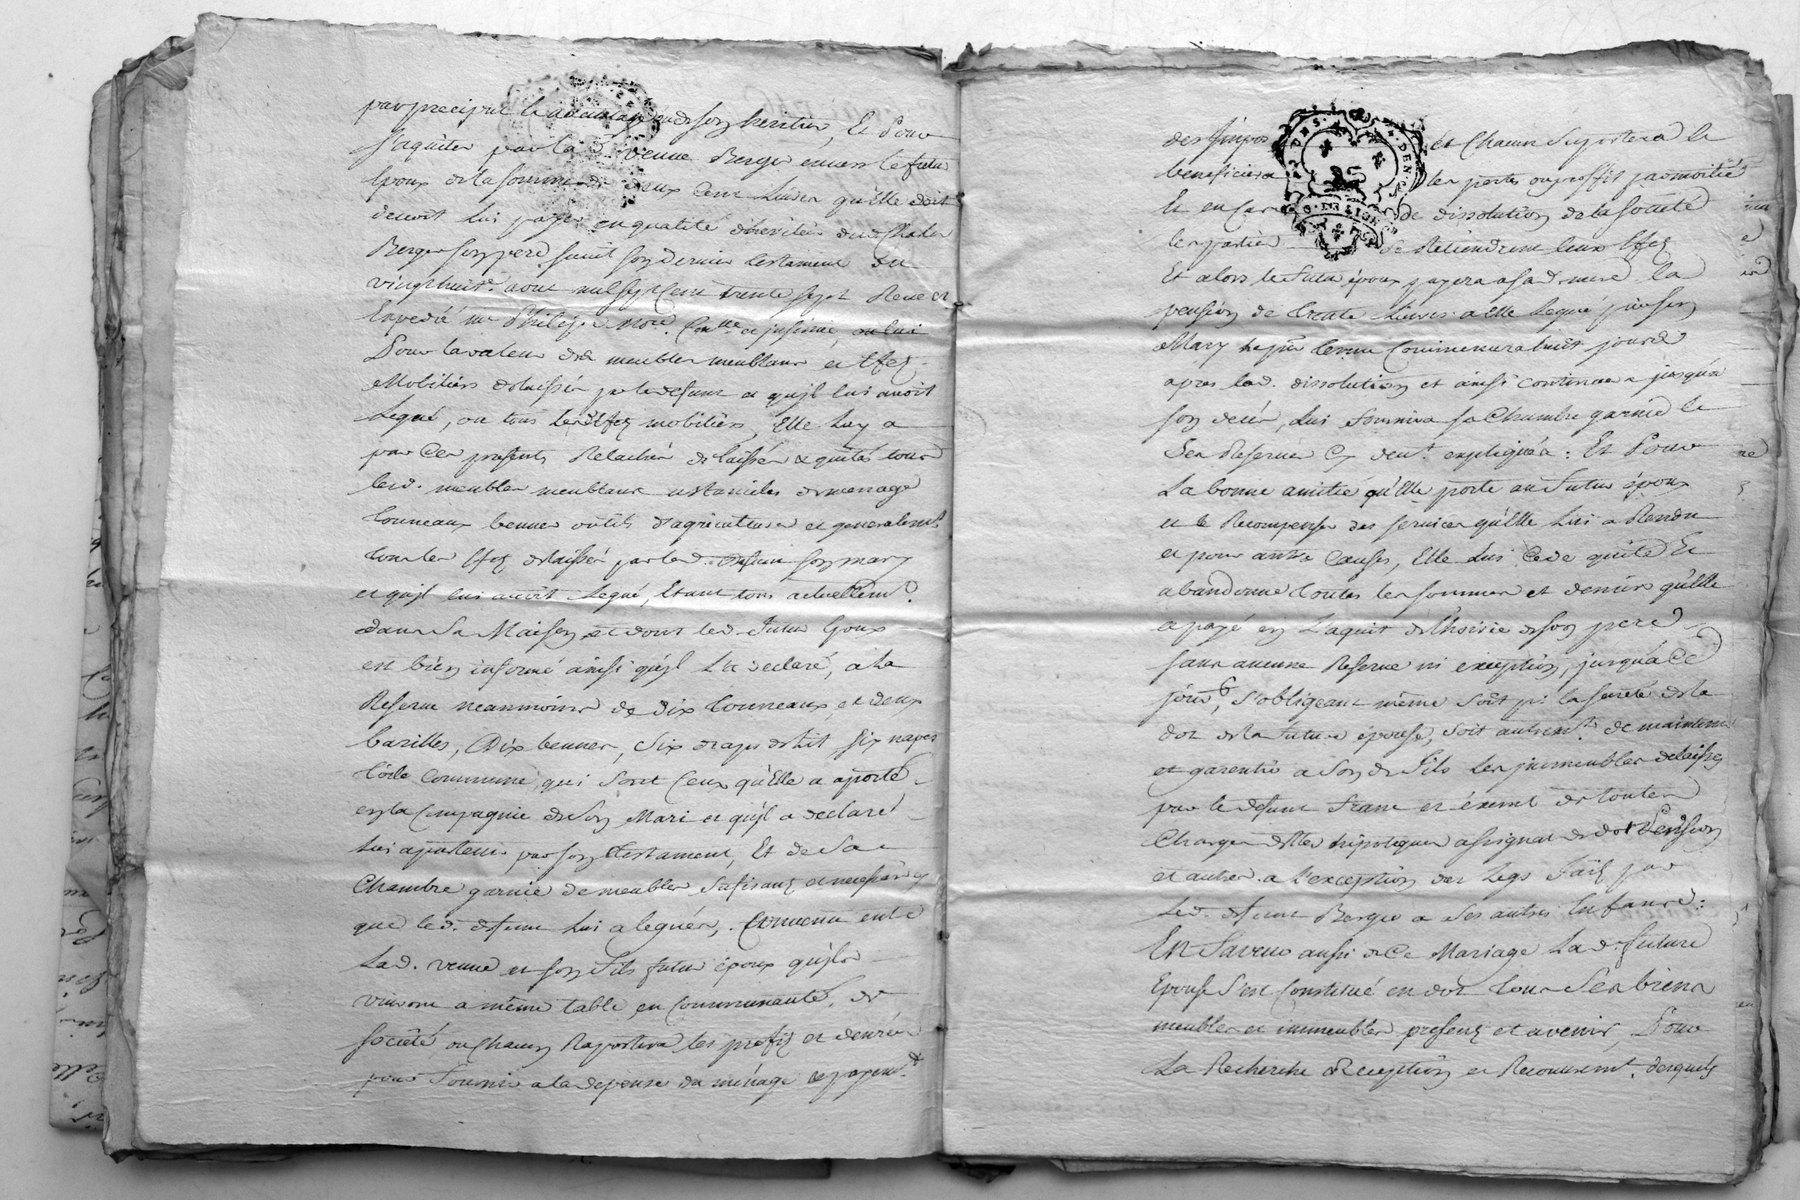 par preciput & advantage and. son heritier, Et Pour
s'aquiter par la d. veuve Berger envers le futur
Epoux de la somme de deux Cent Livres qu'Elle doit
devoit lui payer en qualité d'heritiere dud. Charles
Berger son pere suivt son dernier testament du
vingthuite. aout mil sept Cent trente sept Receu et
Expedié me Philip Nore. Conlle. et insinué, ou lui
Pour la valeur des meubles meublans et Effez
Mobiliers delaissés par le defunt et qu'jl lui avoit
Legué, ou tous lesd. Effez mobiliers, Elle Luy a
par Ces presents Relaché delaissé & quité tous
lesd. meubles meublans ustanciles de menage
tonneaux bennes outils d'agriculture et generalemt.
tous les Effez delaissés par led. defunt son mary
et qu'jl lui avoit Legué, Etant tous actuellemt.
dans Sa Maison et dont led. Futur Epoux
est bien informé ainsi qu'jl L'a declaré, a la
Reserve neanmoins de Dix tonneaux, et deux
barilles, Dix bennes, Six draps de lit, six napes
toile Commune, qui sont Ceux qu'Elle a aporté
en la Compagnie de Son Mari et qu'jl a declaré
Lui apartenir par son testament, Et de Sa
Chambre garnie de meubles Sufisans et necessaires
que led. defunt Lui a legués, Convenu entre
Lad. veuve et son Fils futur époux qu'jls
vivront a même table en Communauté, de
societé ou Chacun Raportera les profiz et denrées
pour Fournir a la depense du ménage & payemt.
des Impos et Chacun Suportera le
beneficiera les pertes ou proffit par moitié
Et en Cas de dissolution de la Societé
les parties Retiendront leurs Effez
Et alors le Futur époux payera a sad. mere la
pension de trente Livres a Elle Legué par son
Mary le pr. terme Commencera huit jours
apres lad. dissolution et ainsi continuera jusqu'a
son decés, Lui Fournira sa Chambre garnie le
Ses Reserves Cy devt. expliquées : Et Pour
La bonne amitié qu'Elle porte au Futur époux
et le Recompenser des services qu'Elle Lui a Rendu
et pour autre Causes, Elle Lui Cede quite Et
abandonne toutes les sommes et deniers qu'Elle
a payé en L'aquit de l'hoirie de son pere
sans aucune Reserve ni exception, jusqu'a Ce
jour, s'obligeant même Soit pr. la sureté de la
dot de la Future épouse, soit autremt. de maintenir
et garentir a Son d. Fils les jmmeubles delaissez
par le defunt Franc et éxemt de toutes
Charges dettes hipoteques assignat de dot Pension
et autres a l'exception des Legs Faiz par
Led. defunt Berger a Ses autres Enfans :
En Faveur aussi de Ce Mariage La d. future
Epouse S'est Constitué en dot tous Ses biens
meubles et immeubles presens et avenir, Pour
La Recherche Reception et Recouvremt. desquels